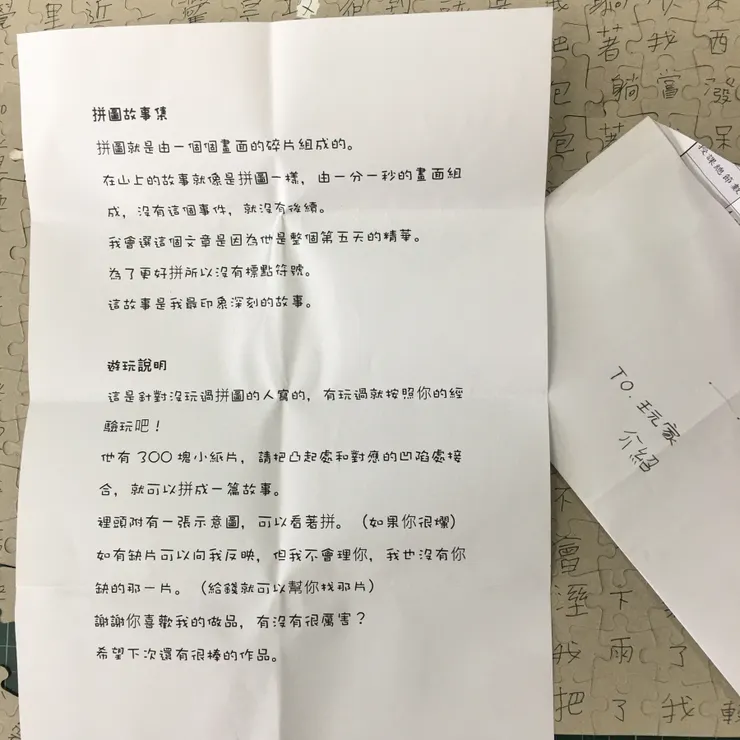 拼圖故事集
拼圖就是由一個個畫面的碎片組成的。
在山上的故事就像是拼圖一樣，由一分一秒的畫面組
成，沒有這個事件，就沒有後續。
我會選這個文章是因為他是整個第五天的精華。
為了更好拼所以沒有標點符號。
這故事是我最印象深刻的故事。
遊玩說明
這是針對沒玩過拼圖的人寫的，有玩過就按照你的經
驗玩吧！
他有300塊小紙片，請把凸起處和對應的凹陷處接
合，就可以拼成一篇故事。
裡頭附有一張示意圖，可以看著拼。（如果你很爛）
如有缺片可以向我反映，但我不會理你，我也沒有你
缺的那一片。（給錢就可以幫你找那片）
謝謝你喜歡我的做品，有沒有很厲害？
希望下次還有很棒的作品。
TO.玩家
介紹
授課總節數
著我西
躺當潑
會
溼下
我雨了
把了我